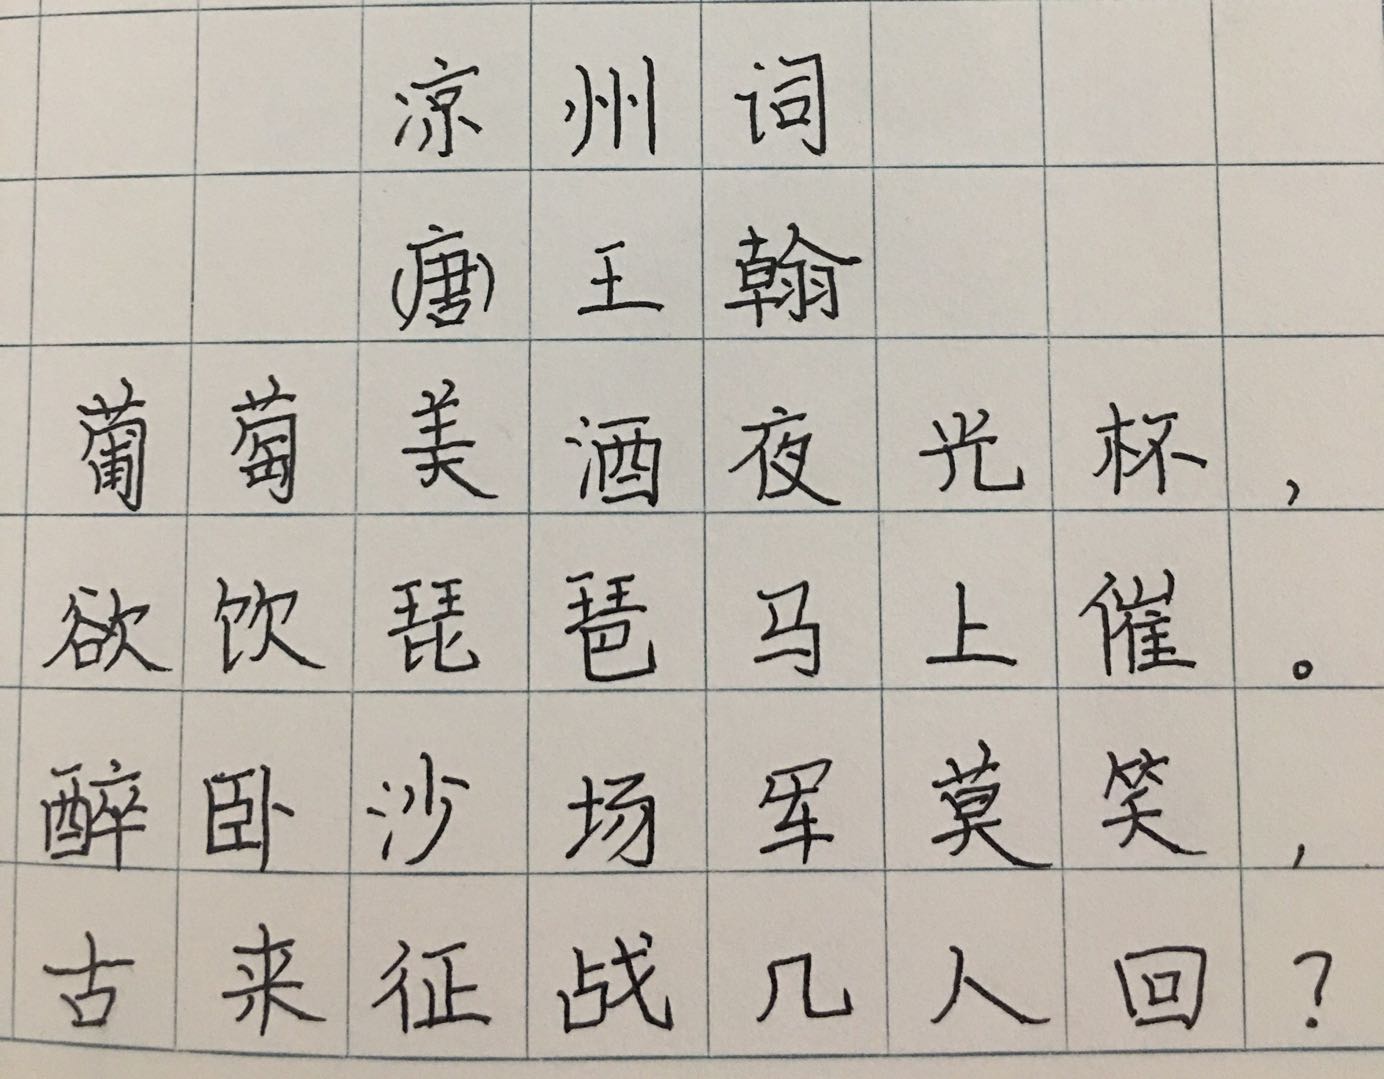 凉州词
(唐)王翰
葡萄美酒夜光杯,
欲饮琵琶马上催。
醉卧沙场军莫笑,
古来征战几人回?